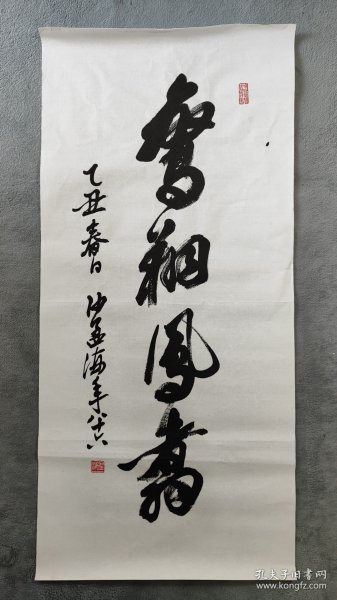 鸾翔凤翥
乙丑春日 沙孟海年八十六
孔夫子旧书网
www.kongfz.com